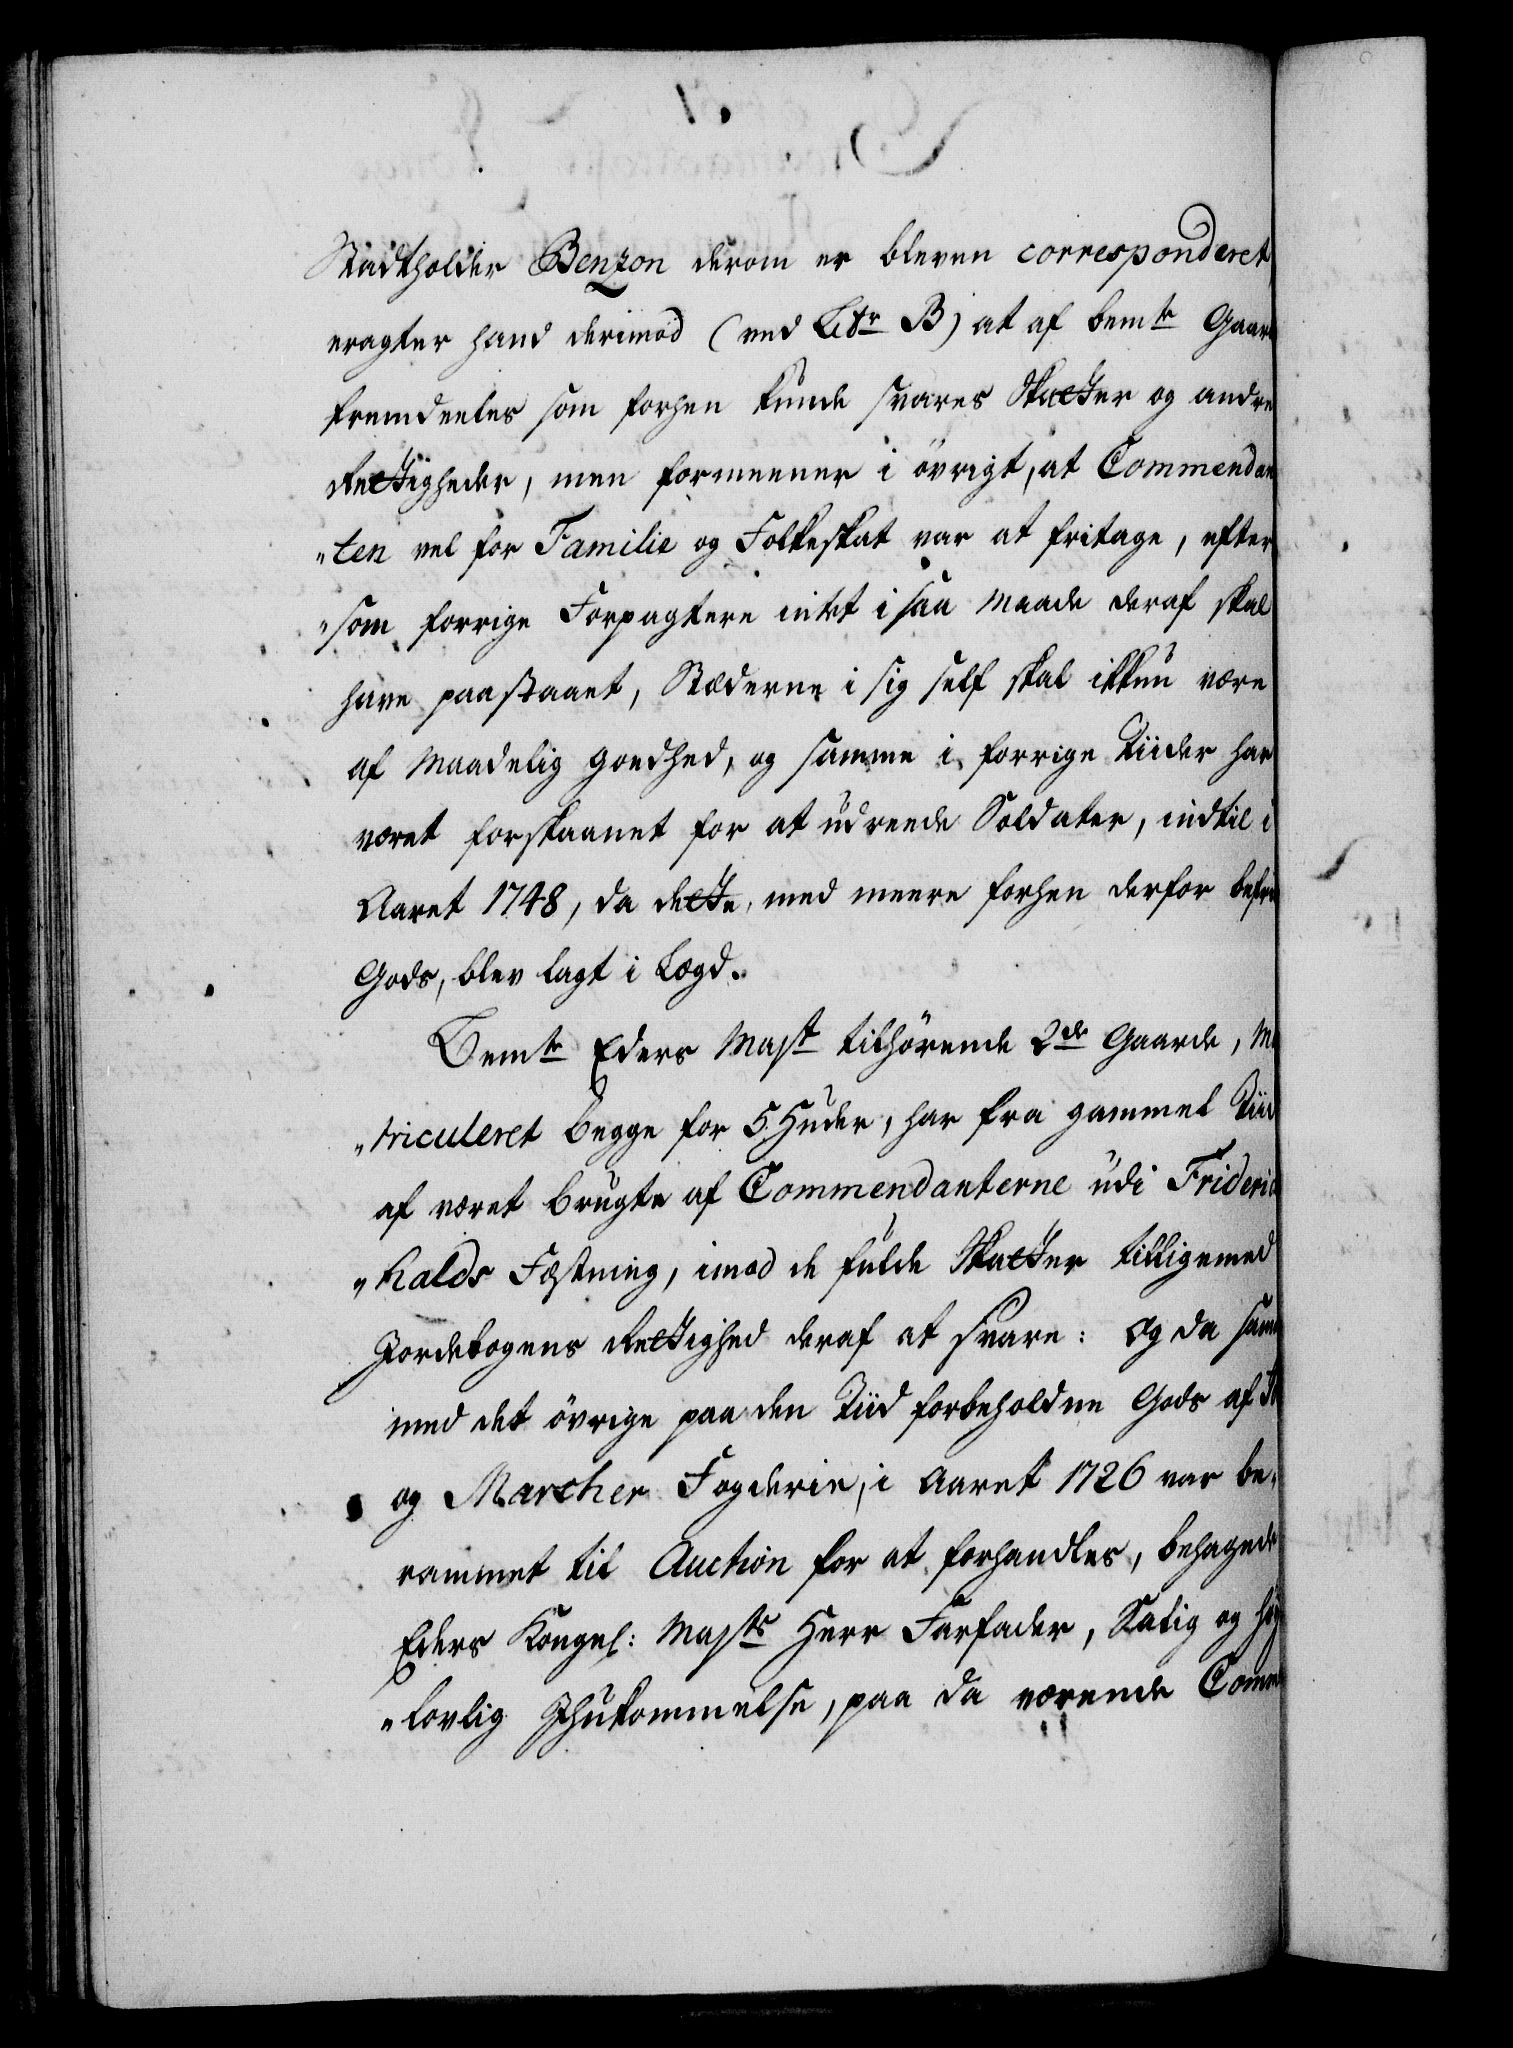 Stadtholder Benzon derom er bleven corresponderet,
eragter hand derimod (ved Litr B) at af bemte Gaard
fremdeeles som forhen kunde svares Skatter og andre
Rettigheder, men formeener i övrigt, at Commendan
"ten vel for Familie og Folkeskat var at fritage, efter
"som forrige Forpagtere intet i saa Maade deraf skal
have paastaaet, Stæderne i sig self skal ikkun være
af Maadelig goedhed, og samme i forrige Tiider har
været forskaanet for at udreede Soldater, indtil i
Aaret 1748, da dette, med meere forhen derfor befri
Gods, blev lagt i Lægd.
Bemte Eders Mayst tilhörende 2de Gaarde, Ma
"triculeret begge for 5 Huder, har fra gammel Tiid
af været brugte af Commendanterne udi Frideric
"halds Fæstning, imod de fulde Skatter tilligemed
Jordebogens Rettighed deraf at svare: Og da samme
med det övrige paa den Tiid forbeholdne Gods af
og Marcher Fogderie, i Aaret 1726 var be-
rammet til Auction for at forhandles, behagede
Eders Kongel: Maysts Herr Farfader, Salig og høy
"lovlig Ihukommelse, paa da værende Comm